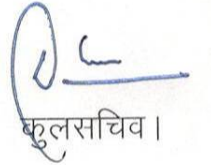 कुलसचिव।